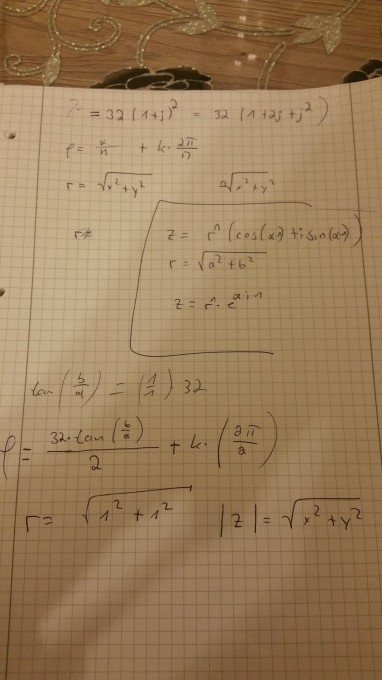 = 32 (1+j)² = 32 (1+2j+j²)
φ = x/n + k · 2π/n
r = √(x²+y²) ²√(x²+y²)
z = rⁿ (cos(α·n) + i sin(α·n))
r = √(a²+b²)
z = rⁿ · e^(α·i·n)
tan (b/a) = (1/1) 32
φ = 32·tan(b/a)/2 + k · (2π/2)
r = √(1²+1²) |z| = √(x²+y²)